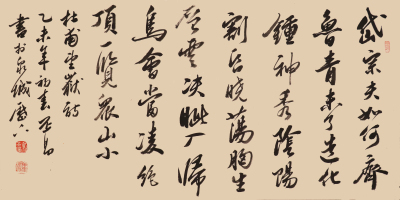 岱宗夫如何齊
魯青未了造化
鍾神秀陰陽
割昏曉蕩胸生
層雲決眦入歸
鳥會當凌絕
頂一覽眾山小
杜甫望嶽詩
乙未年初春
書於京城